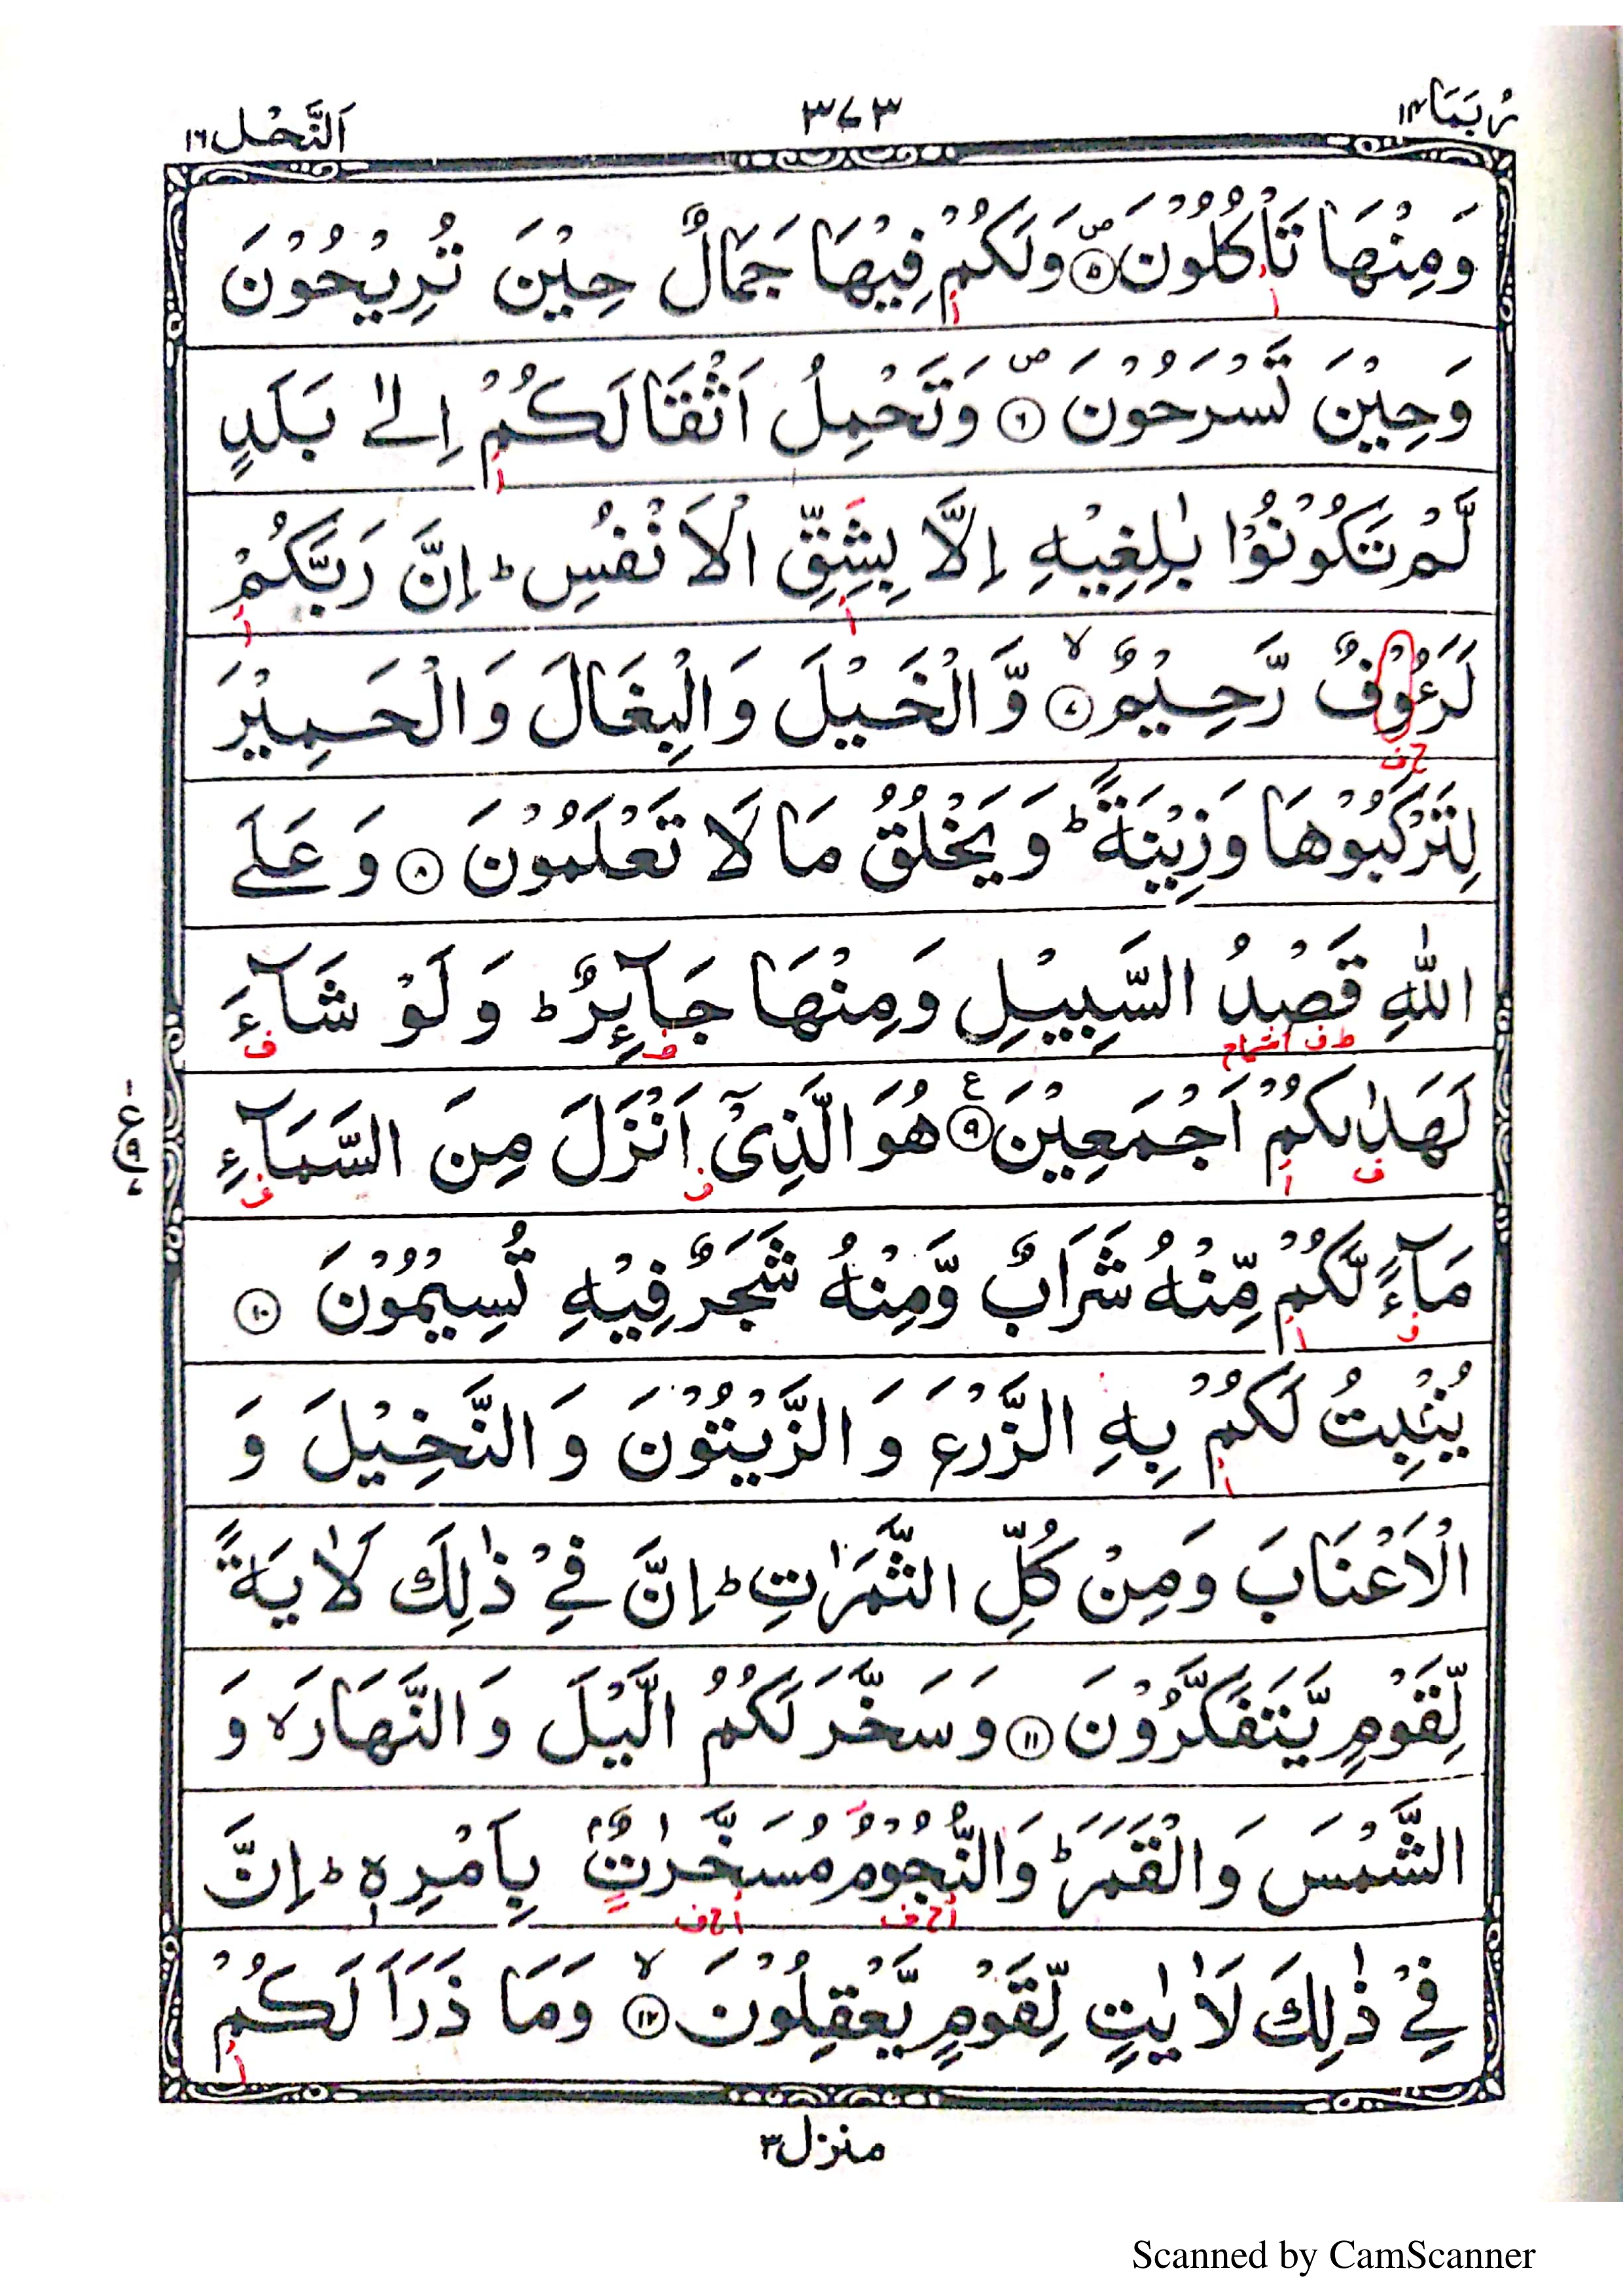 رُبَمَا ١٤
٣٧٣
اَلنَّحْل ١٦
وَمِنْهَا تَاْكُلُوْنَ ۝٥ۖ وَلَكُمْ فِيْهَا جَمَالٌ حِيْنَ تُرِيْحُوْنَ
وَحِيْنَ تَسْرَحُوْنَ ۝٦ۖ وَتَحْمِلُ اَثْقَالَكُمْ اِلٰى بَلَدٍ
لَّمْ تَكُوْنُوْا بٰلِغِيْهِ اِلَّا بِشِقِّ الْاَنْفُسِ ؕ اِنَّ رَبَّكُمْ
لَرَءُوْفٌ رَّحِيْمٌ ۝٧ۙ وَّالْخَيْلَ وَالْبِغَالَ وَالْحَمِيْرَ
لِتَرْكَبُوْهَا وَزِيْنَةً ؕ وَيَخْلُقُ مَا لَا تَعْلَمُوْنَ ۝٨ وَعَلَى
اللّٰهِ قَصْدُ السَّبِيْلِ وَمِنْهَا جَآئِرٌ ؕ وَلَوْ شَآءَ
لَهَدٰىكُمْ اَجْمَعِيْنَ ۝٩ ع هُوَ الَّذِيْۤ اَنْزَلَ مِنَ السَّمَآءِ
مَآءً لَّكُمْ مِّنْهُ شَرَابٌ وَّمِنْهُ شَجَرٌ فِيْهِ تُسِيْمُوْنَ ۝١٠
يُنْۢبِتُ لَكُمْ بِهِ الزَّرْعَ وَالزَّيْتُوْنَ وَالنَّخِيْلَ وَ
الْاَعْنَابَ وَمِنْ كُلِّ الثَّمَرٰتِ ؕ اِنَّ فِيْ ذٰلِكَ لَاٰيَةً
لِّقَوْمٍ يَّتَفَكَّرُوْنَ ۝١١ وَسَخَّرَ لَكُمُ الَّيْلَ وَالنَّهَارَ ۙ وَ
الشَّمْسَ وَالْقَمَرَ ؕ وَالنُّجُوْمُ مُسَخَّرٰتٌۢ بِاَمْرِهٖ ؕ اِنَّ
فِيْ ذٰلِكَ لَاٰيٰتٍ لِّقَوْمٍ يَّعْقِلُوْنَ ۝١٢ۙ وَمَا ذَرَاَ لَكُمْ
منزل ٣
Scanned by CamScanner